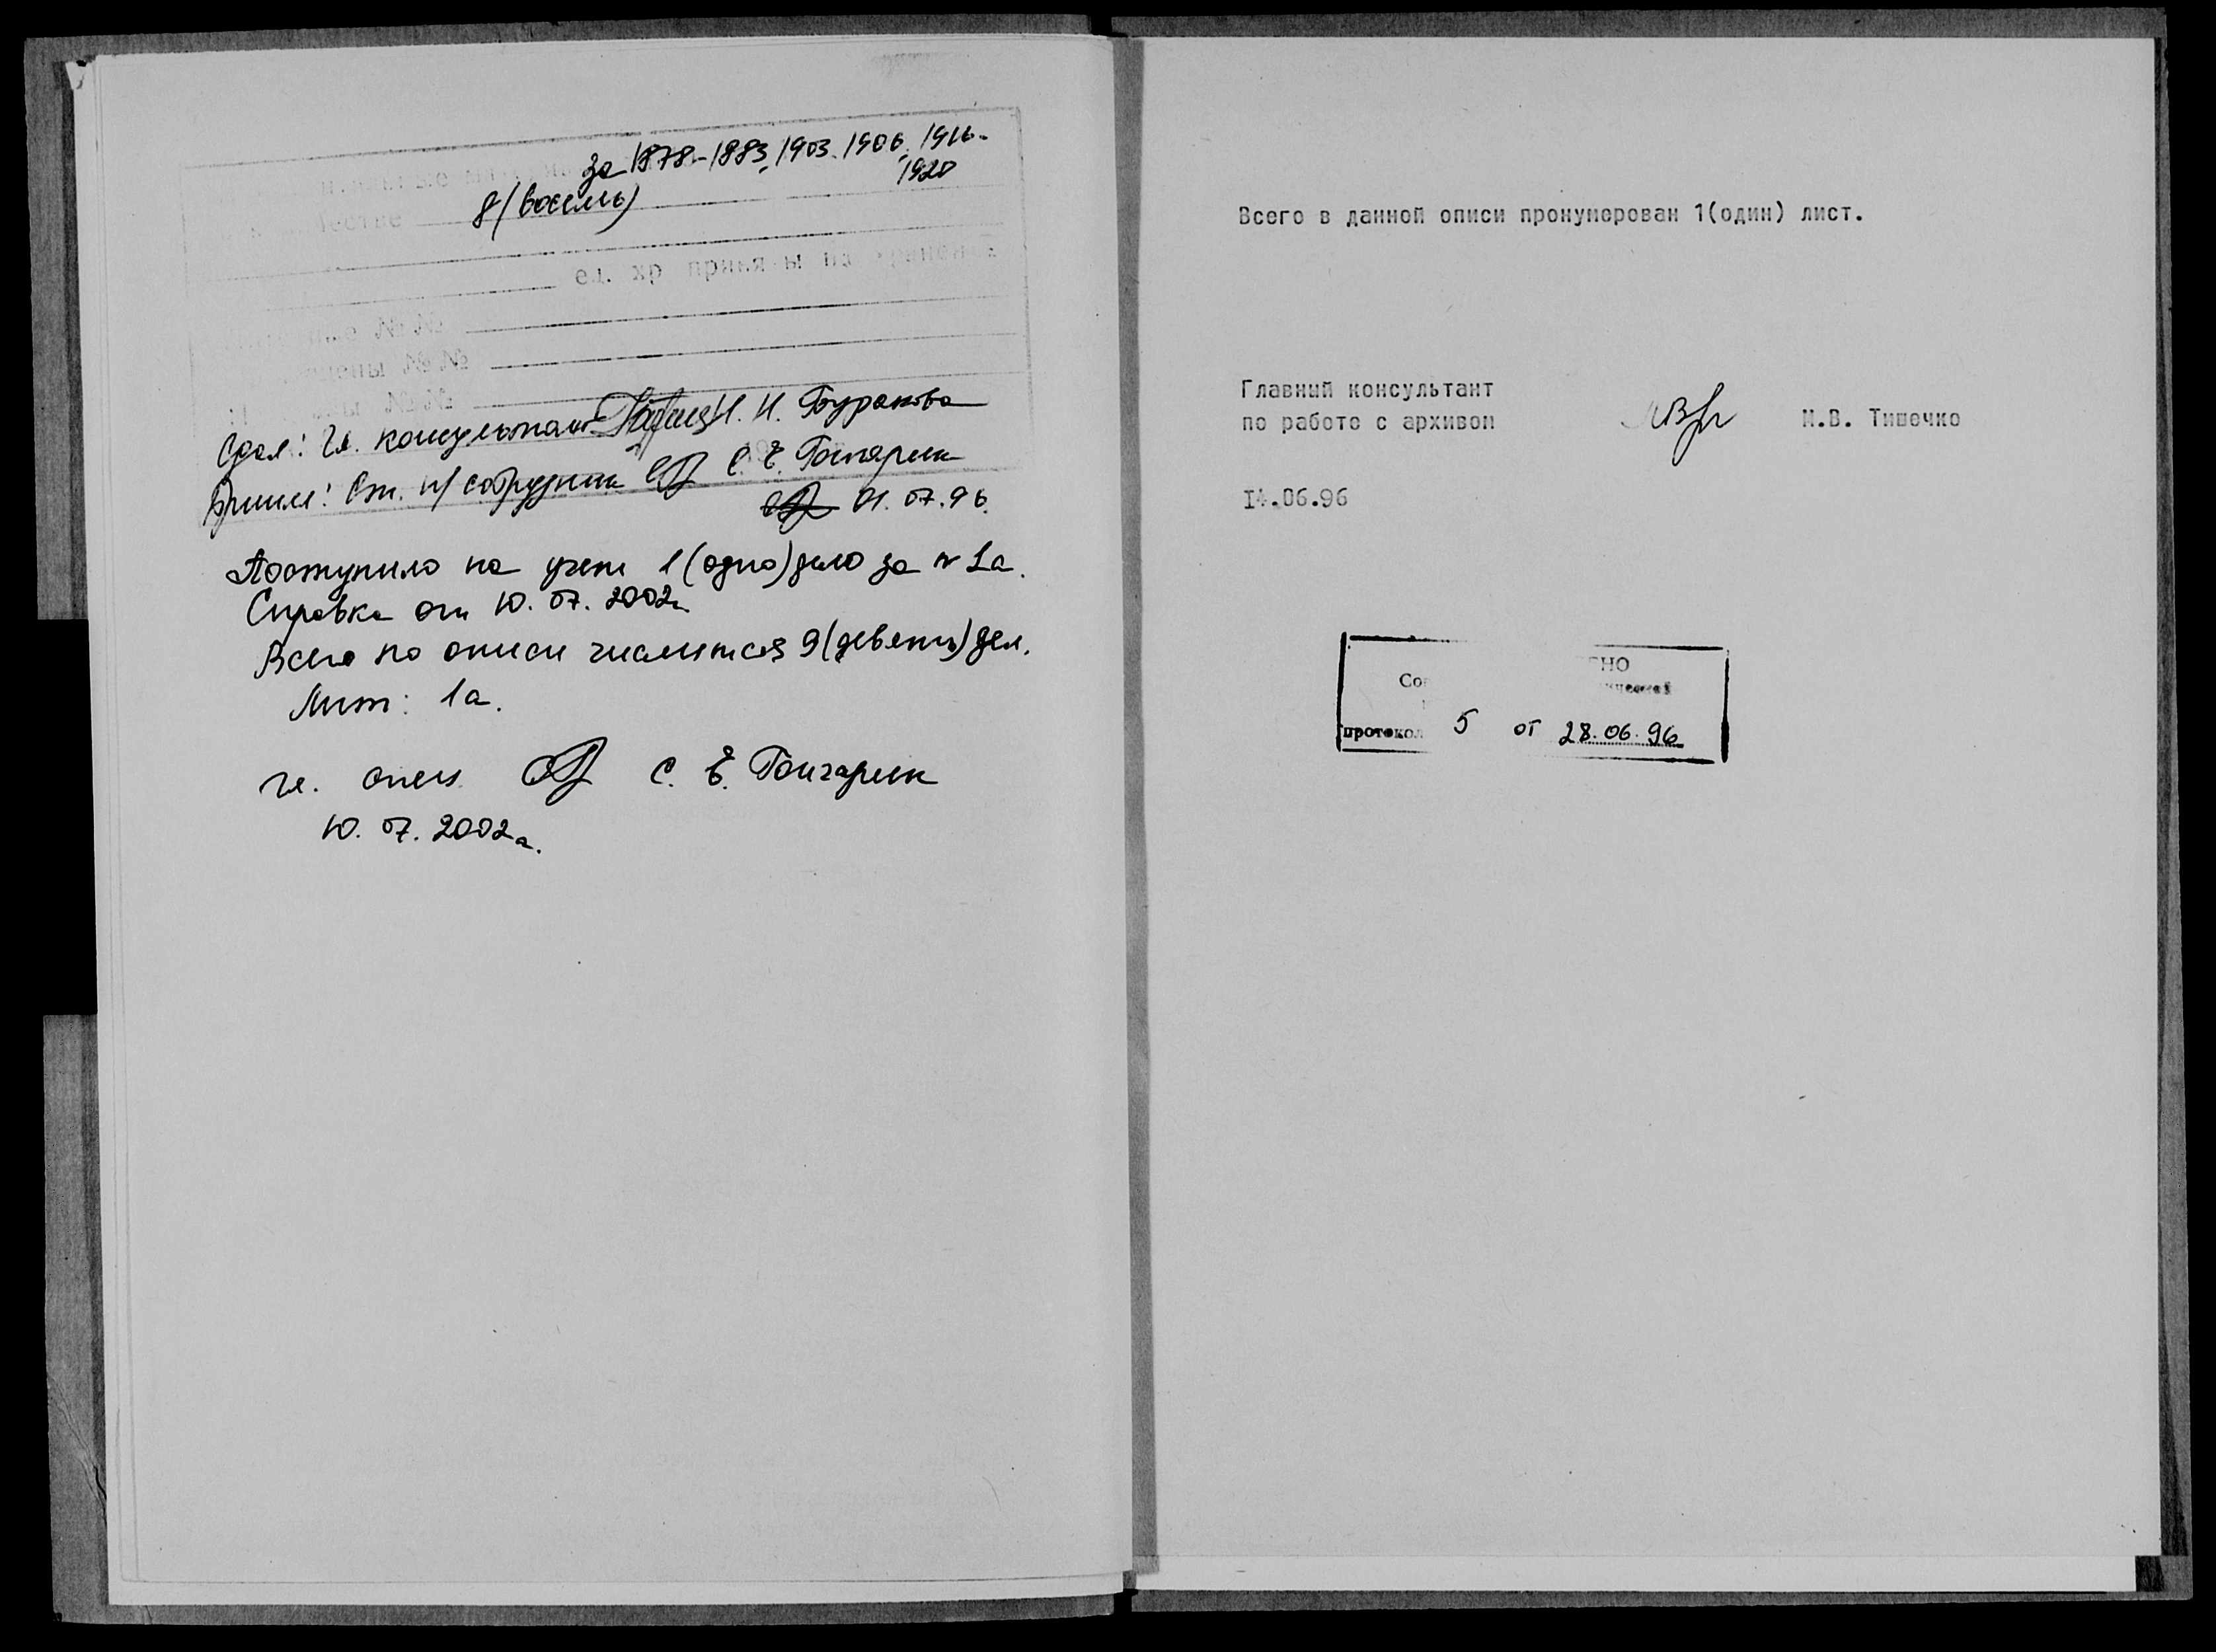 за 1878-1883, 1903. 1906, 1916-
1920
8 (восемь)
ед. хр приня ы на хранен
№ №
№ №
Сдал: Гл. консультант Н. Н. Буракова
Принял: Ст. н/сотрудник С. Е. Гончарик
01. 07. 96.
Поступило на учет 1 (одно) дело за № 1а.
Справка от 10. 07. 2002г.
Всего по описи числится 9 (девять) дел.
Лит: 1а.
Гл. спец. С. Е. Гончарик
10. 07. 2002г.
Всего в данной описи пронумерован 1(один) лист.
Главный консультант
по работе с архивом М.В. Тишечко
14.06.96
НО
Со
протокол 5 от 28.06.96